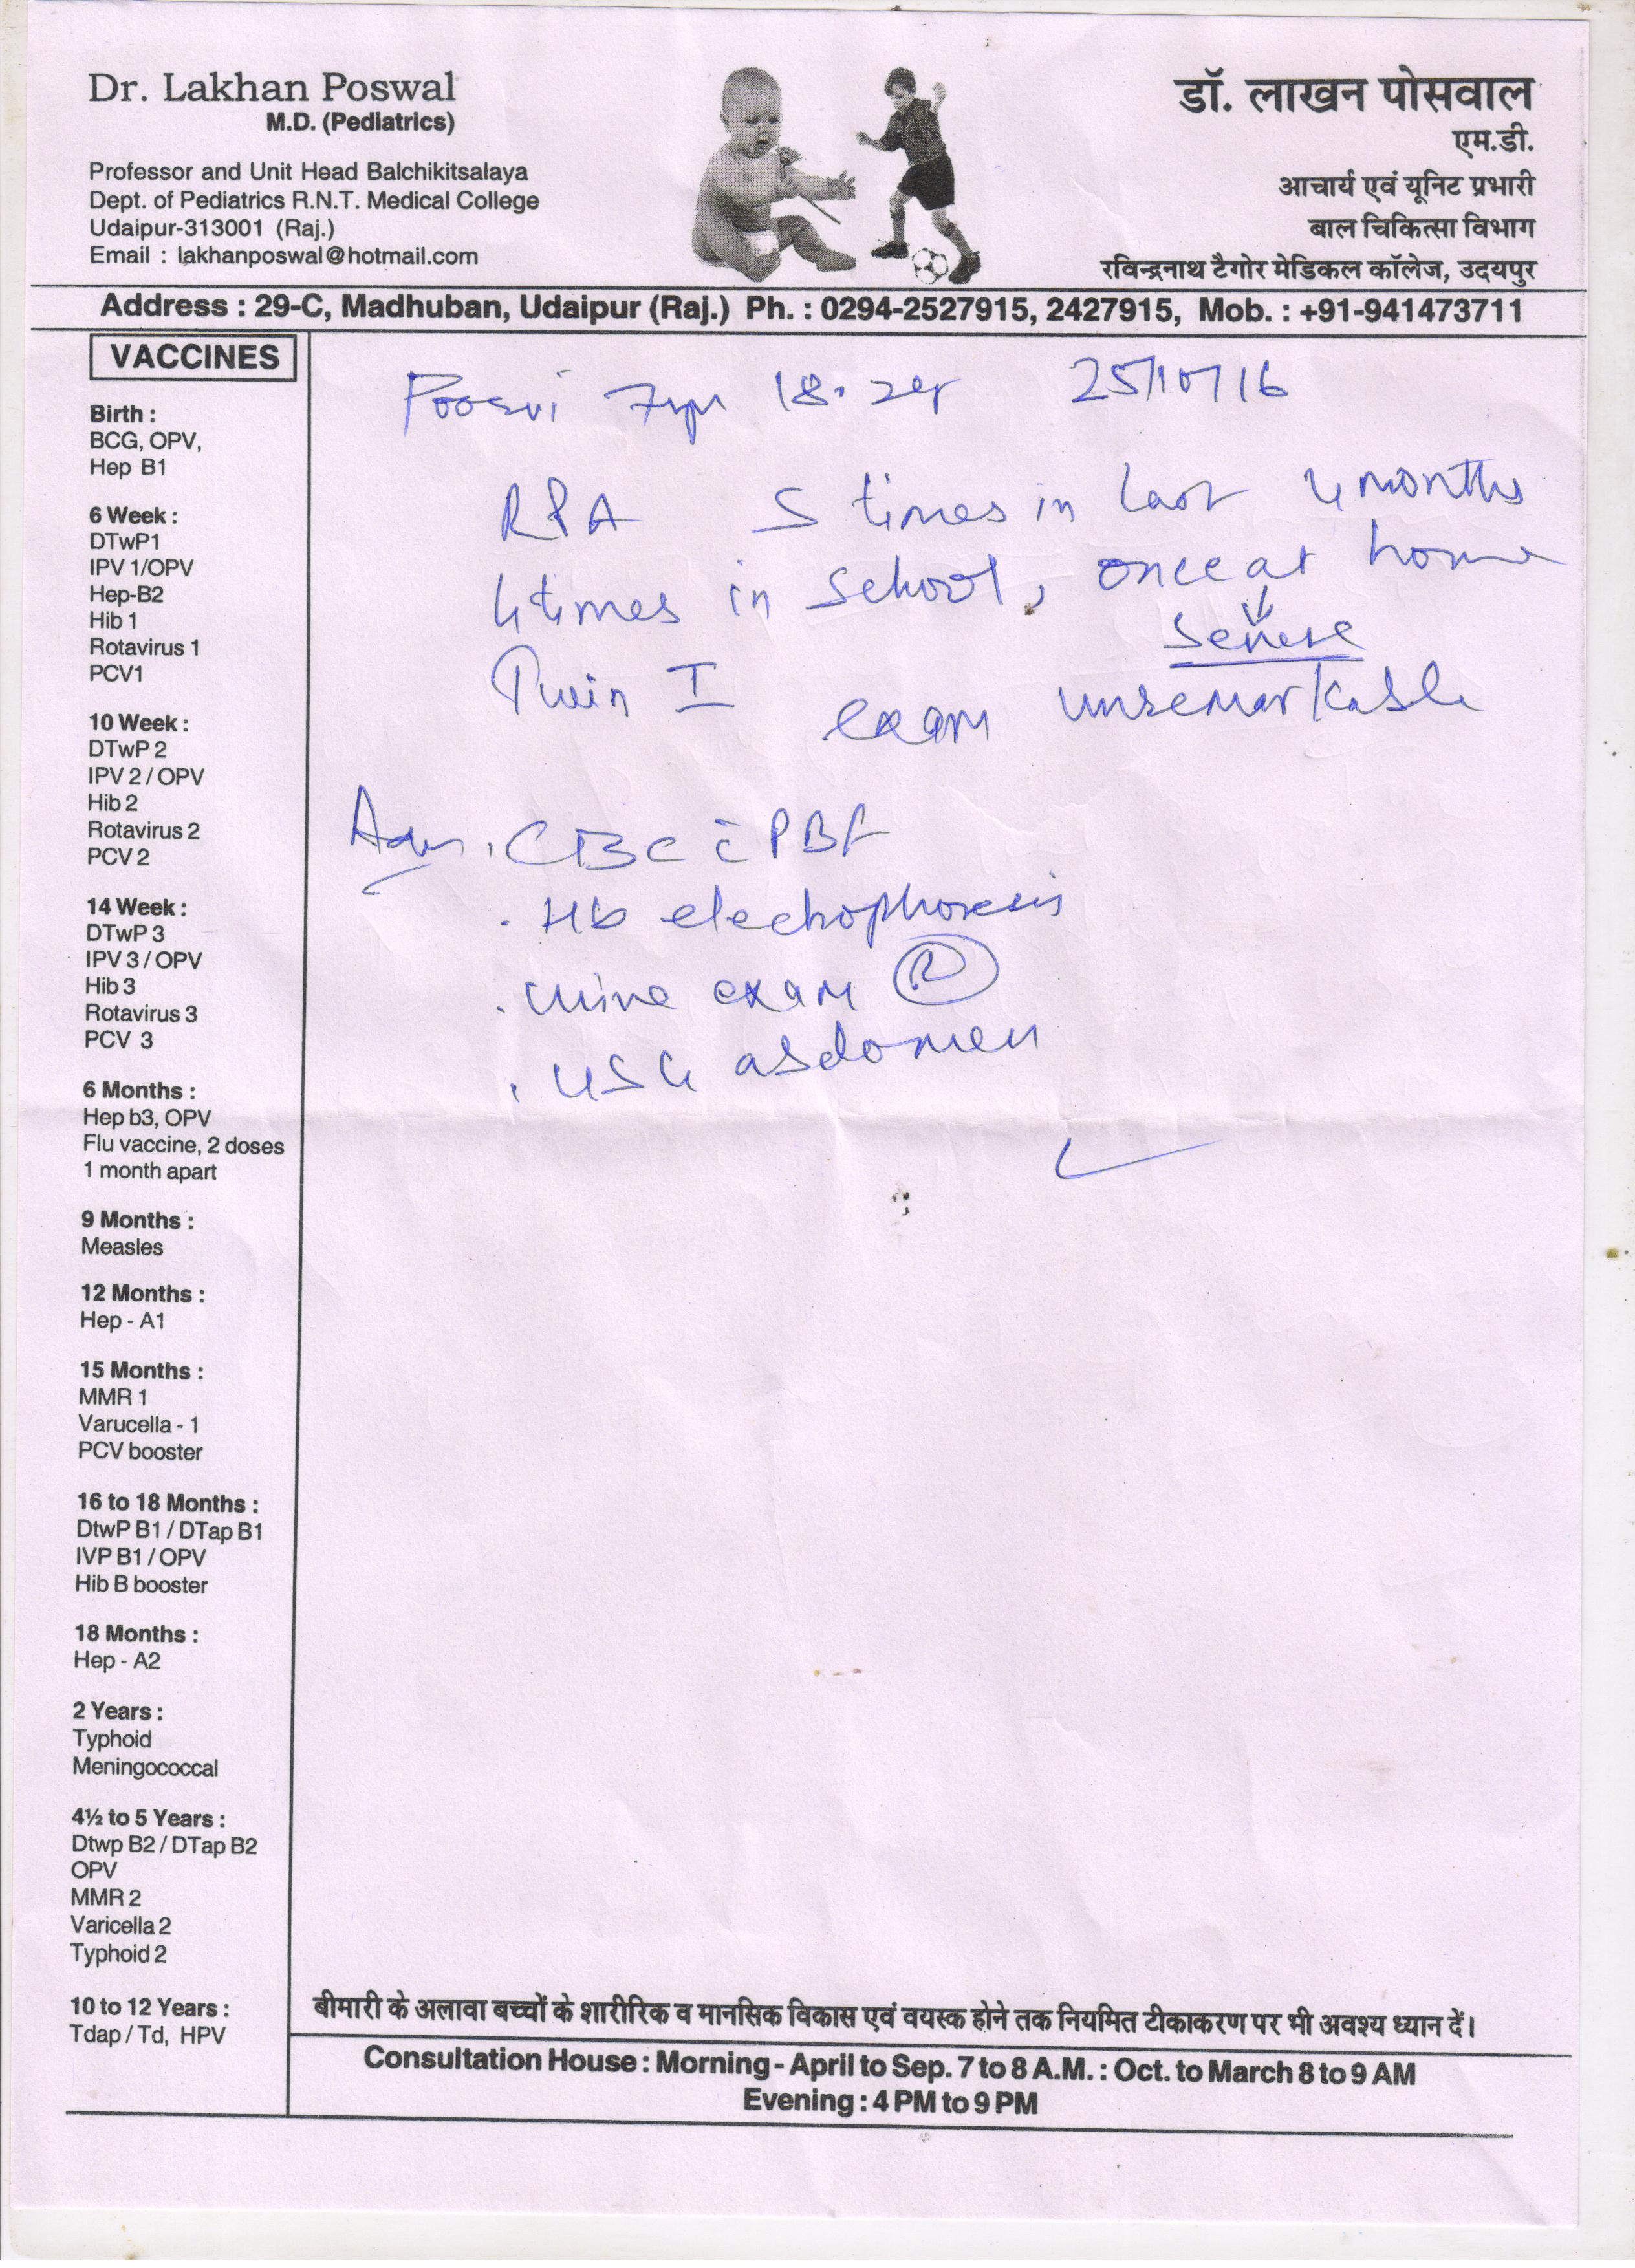 Dr. Lakhan Poswal
M.D. (Pediatrics)
Professor and Unit Head Balchikitsalaya
Dept. of Pediatrics R.N.T. Medical College
Udaipur-313001 (Raj.)
Email : lakhanposwal@hotmail.com
डॉ. लाखन पोसवाल
एम.डी.
आचार्य एवं यूनिट प्रभारी
बाल चिकित्सा विभाग
रविन्द्रनाथ टैगोर मेडिकल कॉलेज, उदयपुर
Address : 29-C, Madhuban, Udaipur (Raj.) Ph. : 0294-2527915, 2427915, Mob. : +91-941473711
VACCINES
Birth :
BCG, OPV,
Hep B1
6 Week :
DTwP1
IPV 1/OPV
Hep-B2
Hib 1
Rotavirus 1
PCV1
10 Week :
DTwP 2
IPV 2 / OPV
Hib 2
Rotavirus 2
PCV 2
14 Week :
DTwP 3
IPV 3 / OPV
Hib 3
Rotavirus 3
PCV 3
6 Months :
Hep b3, OPV
Flu vaccine, 2 doses
1 month apart
9 Months :
Measles
12 Months :
Hep - A1
15 Months :
MMR 1
Varucella - 1
PCV booster
16 to 18 Months :
DtwP B1 / DTap B1
IVP B1 / OPV
Hib B booster
18 Months :
Hep - A2
2 Years :
Typhoid
Meningococcal
4½ to 5 Years :
Dtwp B2 / DTap B2
OPV
MMR 2
Varicella 2
Typhoid 2
10 to 12 Years :
Tdap / Td, HPV
Poorvi 7yr 25/10/16
RPA 5 times in last 4 months
4 times in School, once at home
severe
Twin I exam unremarkable
. CBC c̄ PBF
. Hb electrophoresis
. urine exam Ⓡ
. USG abdomen
बीमारी के अलावा बच्चों के शारीरिक व मानसिक विकास एवं वयस्क होने तक नियमित टीकाकरण पर भी अवश्य ध्यान दें।
Consultation House : Morning - April to Sep. 7 to 8 A.M. : Oct. to March 8 to 9 AM
Evening : 4 PM to 9 PM